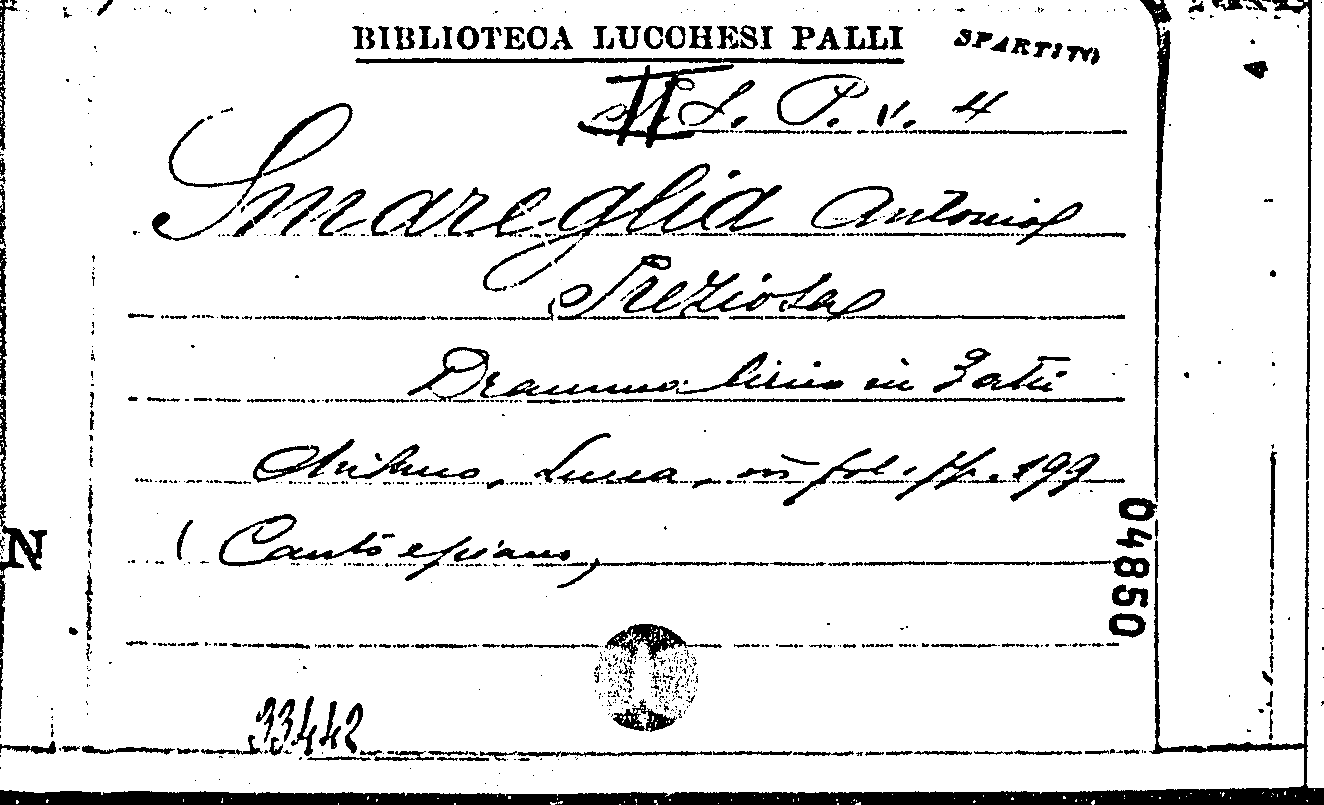 BIBLIOTECA LUCCHESI PALLI
SPARTITO
II S. P. v. 4
Smareglia Antonio
Preziosa
Dramma lirico in 3 atti
Milano, Lucca, in fol. pp. 199
(Canto e piano)
N
04850
33442